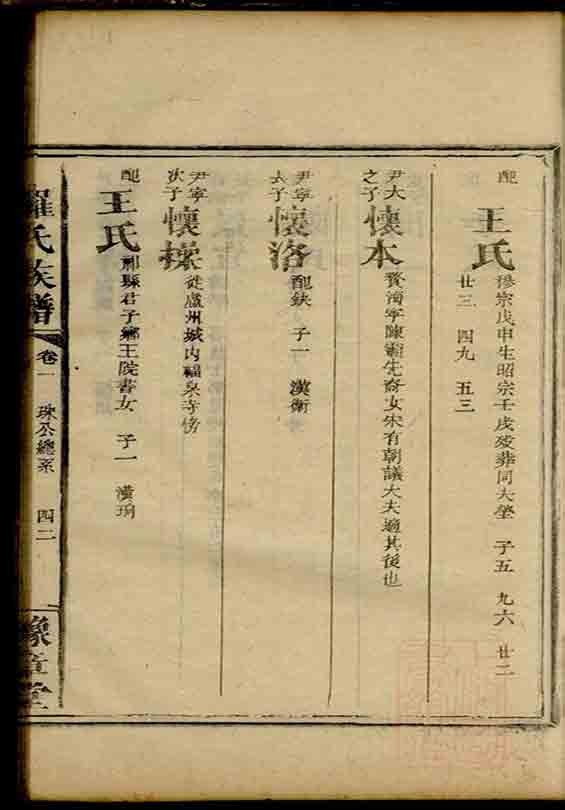 配 王氏 穆宗戊申生昭宗壬戌歿葬同夫塋 子五 九六 廿二
廿三 四九 五三
尹大之子 懷本 贅海寧陳霸先裔女宋有朝議大夫適其後也
尹寧長子 懷洛 配缺 子一 漢衛
尹寧次子 懷操 徙盧州城内福泉寺傍
配 王氏 祁縣君子鄉王院書女 子一 漢珦
羅氏族譜 卷一 珠公總系 四二 豫章堂